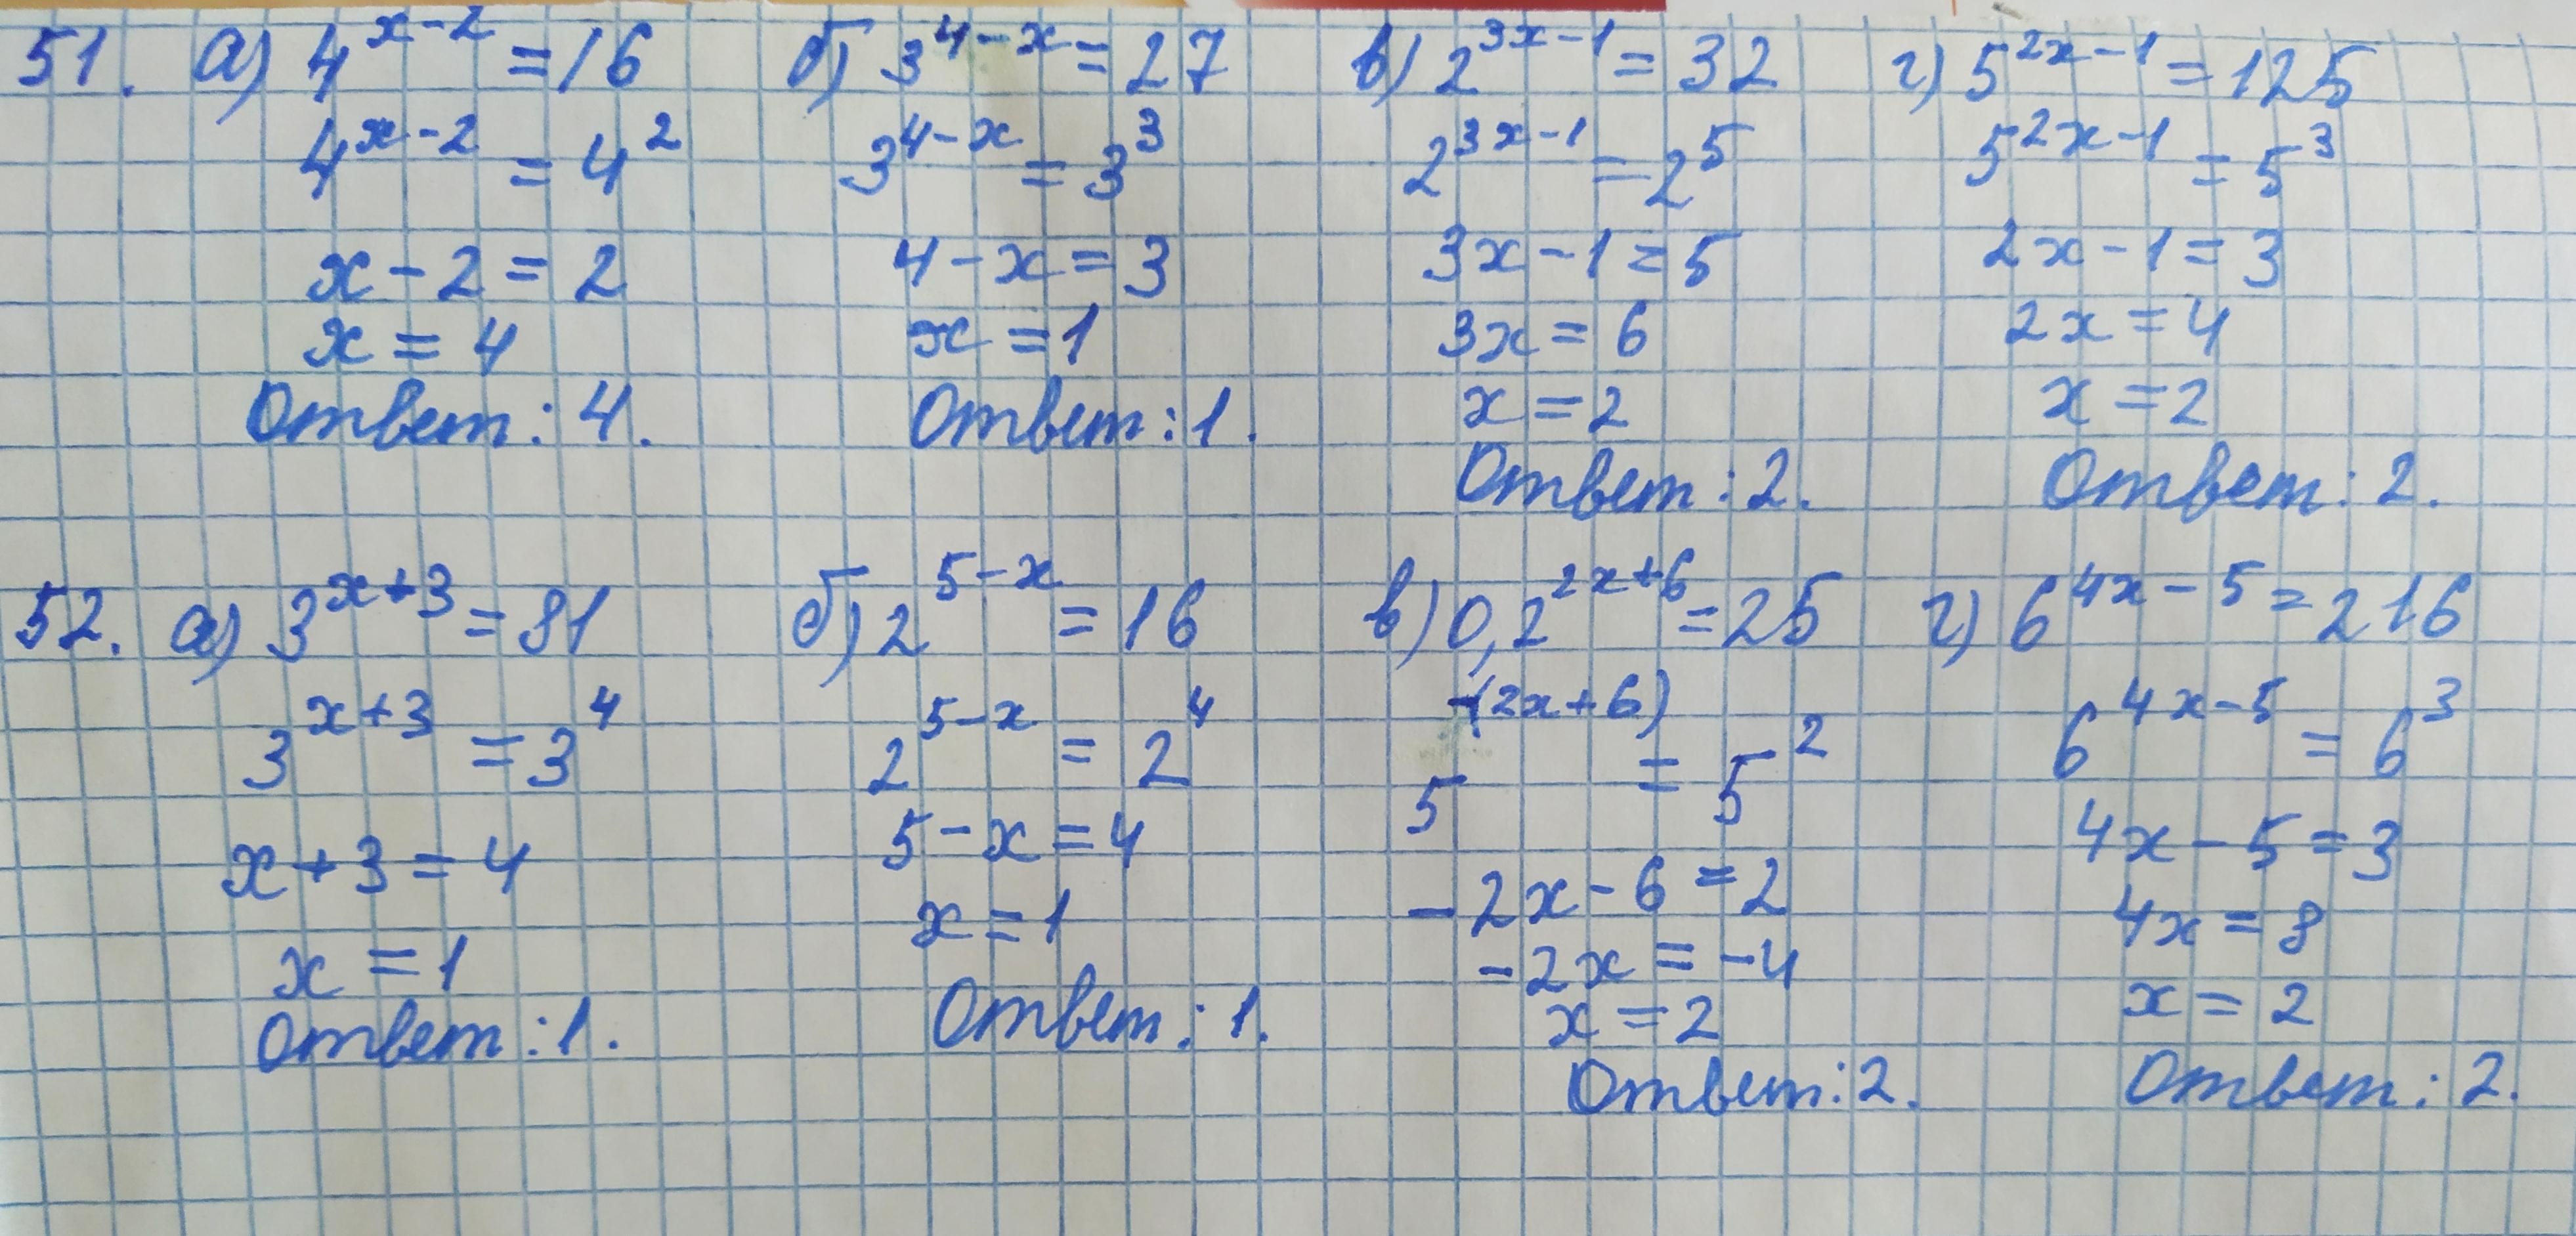 51. а) 4^{x-2} = 16
4^{x-2} = 4^2
x - 2 = 2
x = 4
Ответ: 4.
б) 3^{4-x} = 27
3^{4-x} = 3^3
4 - x = 3
x = 1
Ответ: 1.
в) 2^{3x-1} = 32
2^{3x-1} = 2^5
3x - 1 = 5
3x = 6
x = 2
Ответ: 2.
г) 5^{2x-1} = 125
5^{2x-1} = 5^3
2x - 1 = 3
2x = 4
x = 2
Ответ: 2.
52. а) 3^{x+3} = 81
3^{x+3} = 3^4
x + 3 = 4
x = 1
Ответ: 1.
б) 2^{5-x} = 16
2^{5-x} = 2^4
5 - x = 4
x = 1
Ответ: 1.
в) 0,2^{2x+6} = 25
5^{-(2x+6)} = 5^2
-2x - 6 = 2
-2x = -4
x = 2
Ответ: 2.
г) 6^{4x-5} = 216
6^{4x-5} = 6^3
4x - 5 = 3
4x = 8
x = 2
Ответ: 2.